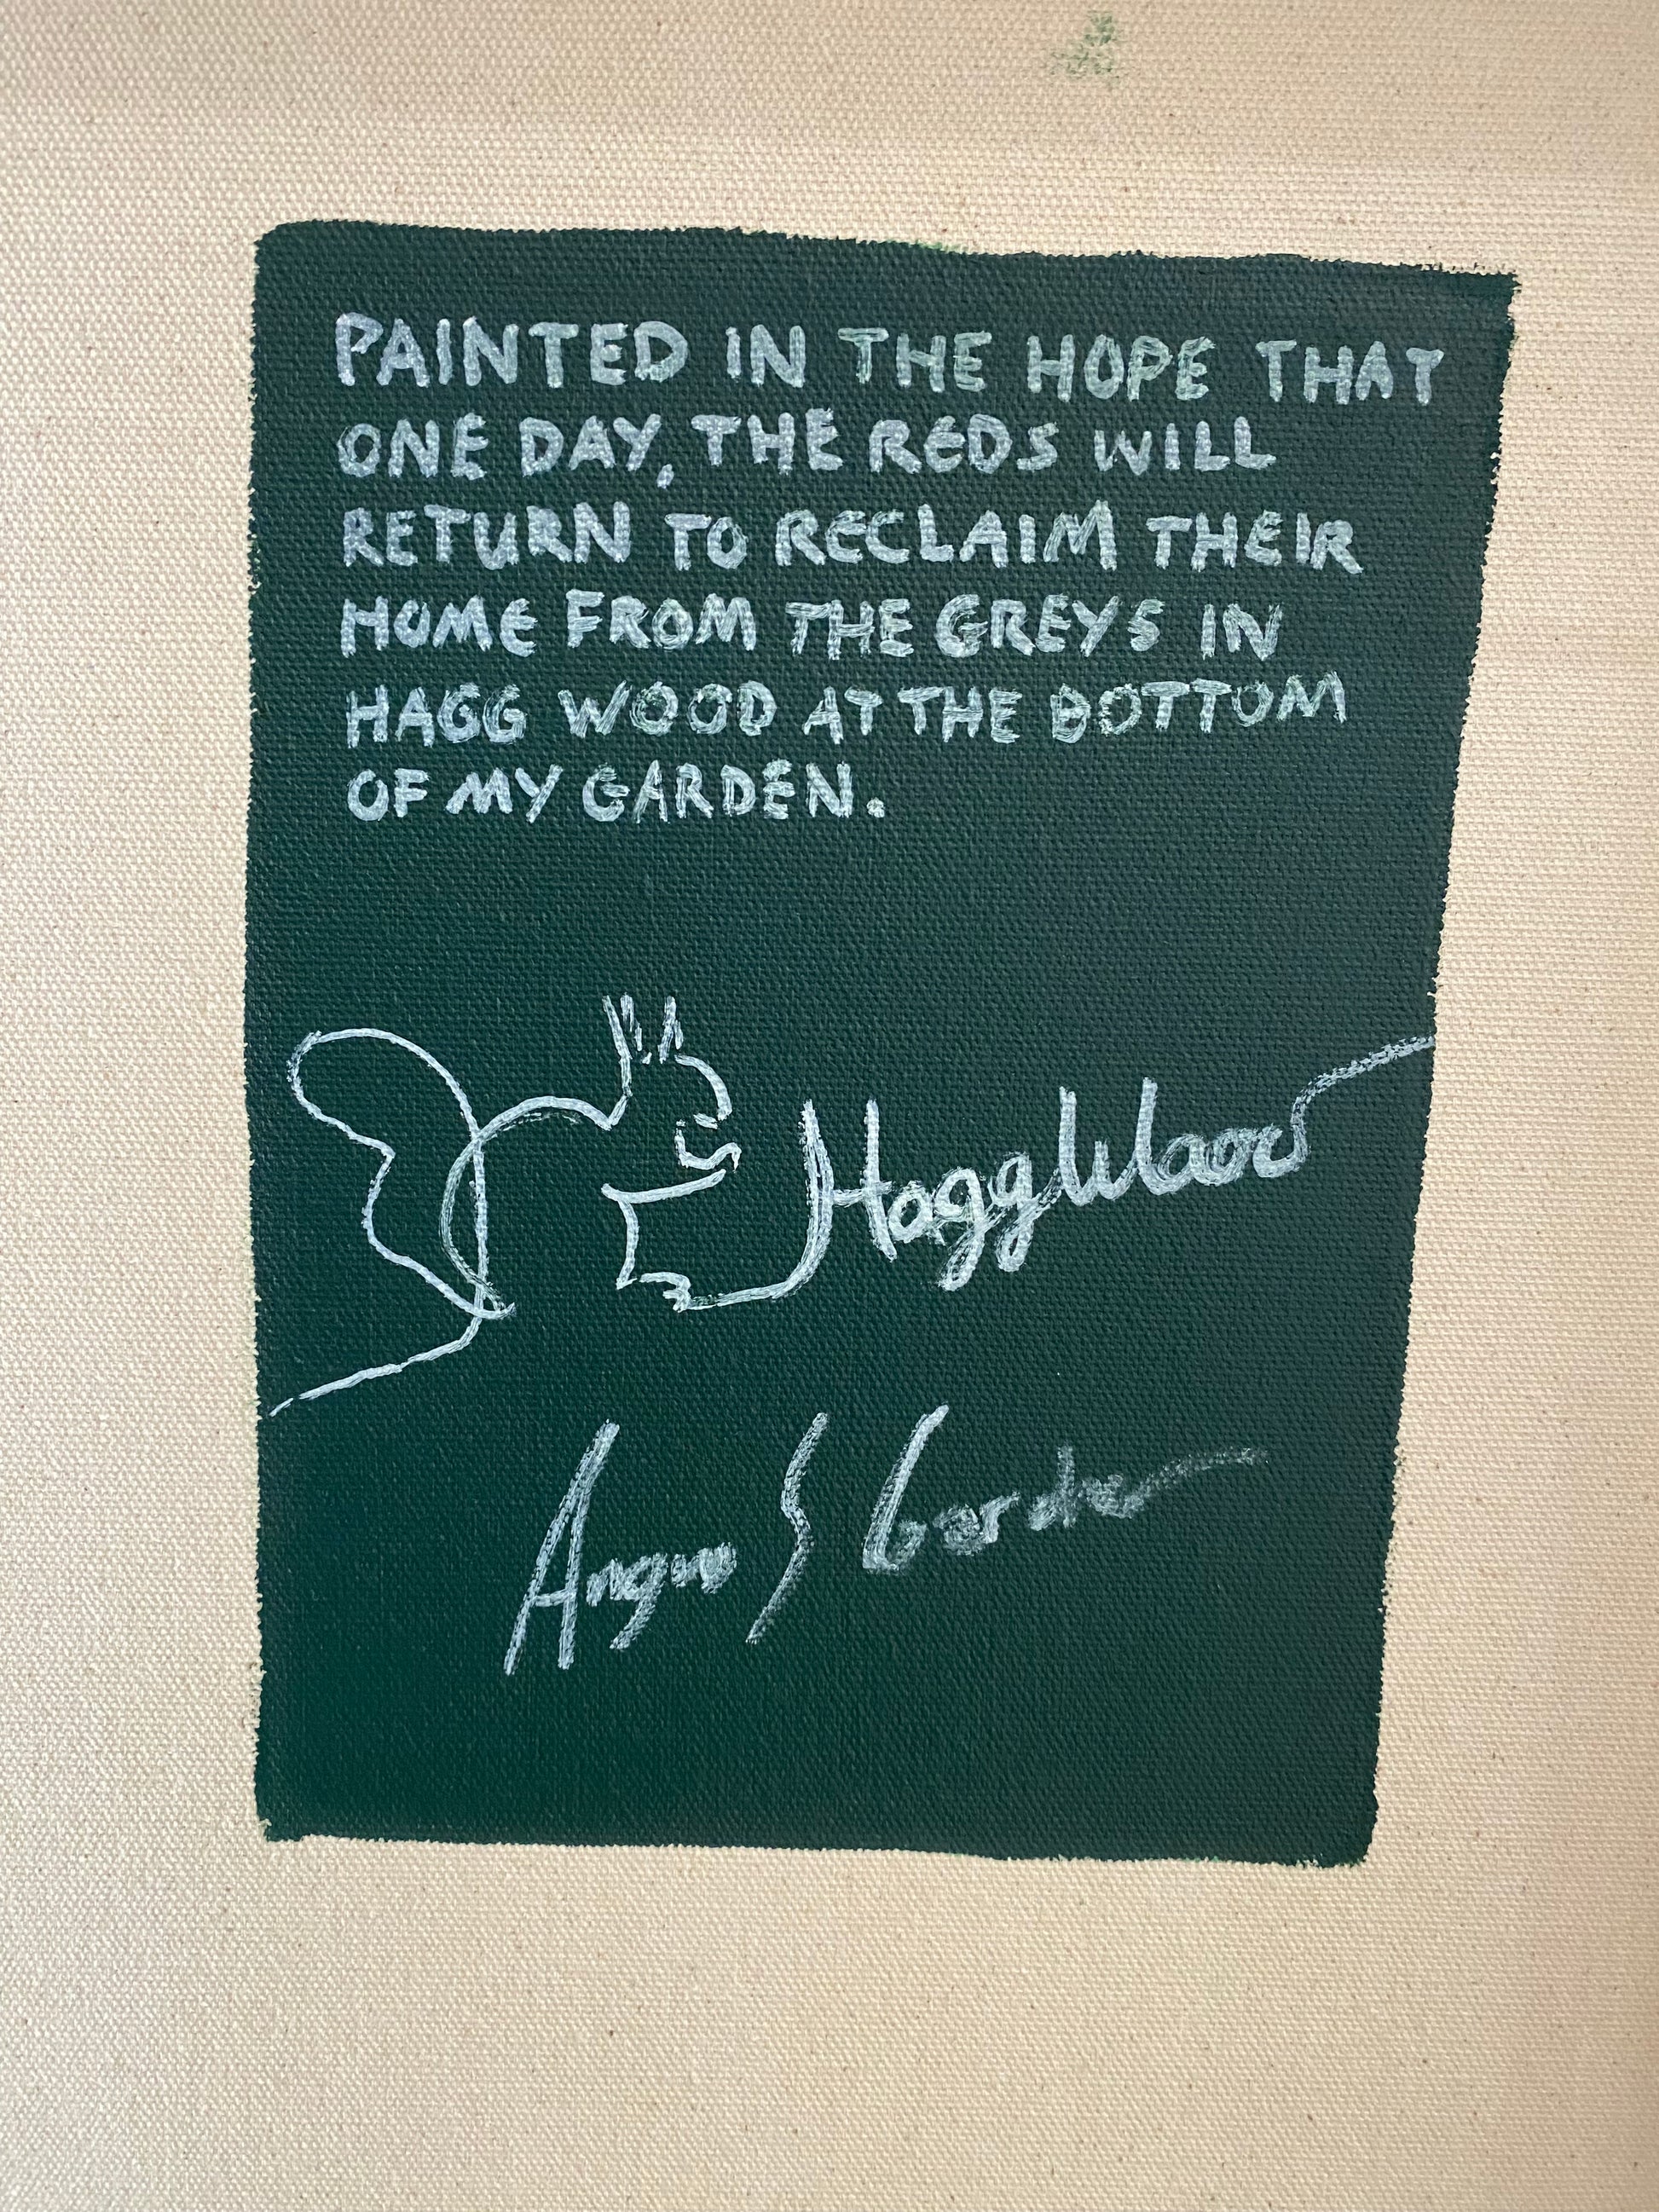 PAINTED IN THE HOPE THAT
ONE DAY, THE REDS WILL
RETURN TO RECLAIM THEIR
HOME FROM THE GREYS IN
HAGG WOOD AT THE BOTTOM
OF MY GARDEN.
Hagg Wood
Angus S